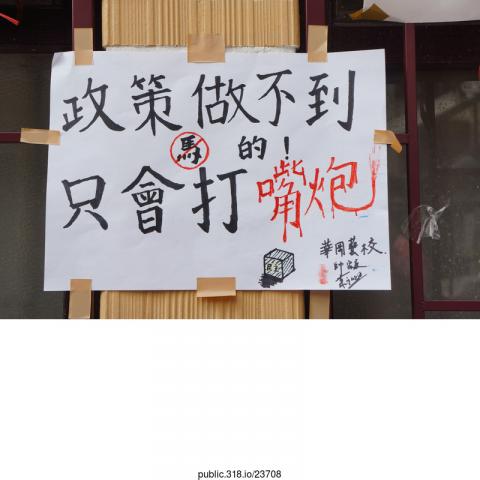 政策做不到
馬的！
只會打嘴炮
華岡藝校
public.318.io/23708